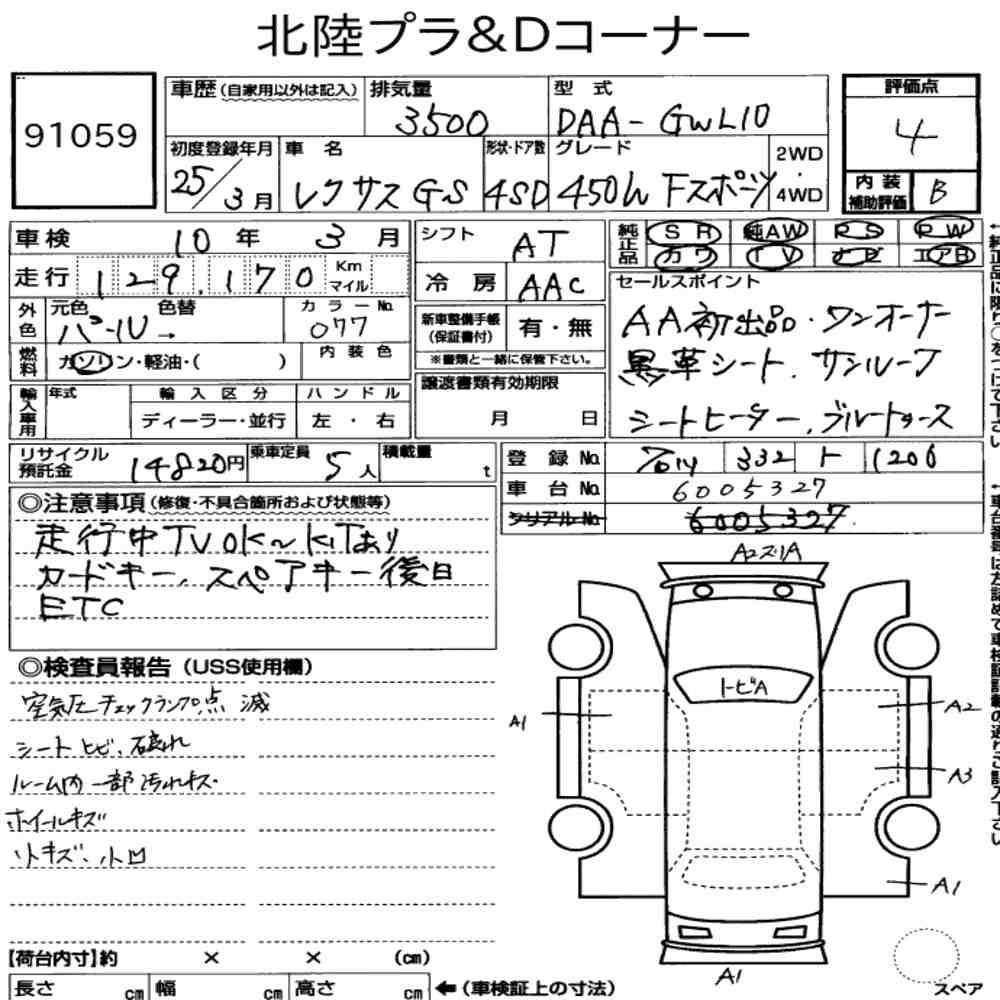 北陸プラ&Dコーナー
91059
車歴(自家用以外は記入)
排気量
3500
型式
DAA-GWL10
評価点
4
初度登録年月
25/3月
車名
レクサス GS
形状・ドア数
4SD
グレード
450h Fスポーツ
2WD
・
4WD
内装
補助評価
B
車検 10年 3月
シフト
AT
純正品
SR 純AW PS PW
カワ TV ナビ エアB
走行 129,170 Km マイル
冷房
AAC
セールスポイント
AA初出品・ワンオーナー
黒革シート、サンルーフ
シートヒーター、ブルートゥース
外色
元色 色替
パール→
カラーNo.
077
新車整備手帳
(保証書付)
有・無
※書類と一緒に保管下さい。
燃料
ガソリン・軽油・( )
内装色
譲渡書類有効期限
月 日
輸入車用
年式
輸入区分
ディーラー・並行
ハンドル
左・右
リサイクル
預託金
14820円
乗車定員
5人
積載量
t
登録No.
332 1206
車台No.
6005327
シリアルNo.
6005327
◎注意事項(修復・不具合箇所および状態等)
走行中TVOK〜KITあり
カードキー、スペアキー後日
ETC
◎検査員報告(USS使用欄)
空気圧チェックランプ点滅
シートヒビ、破れ
ルーム内一部汚れキズ
ホイールキズ
リトキズ、小凹
A2ズリA
トビA
A1
A2
A3
A1
A1
スペア
【荷台内寸】約 × × (cm)
長さ cm 幅 cm 高さ cm ←(車検証上の寸法)
←純正品に限り○をつけて下さい
←車台番号は左詰めで車検証記載の通りご記入下さい